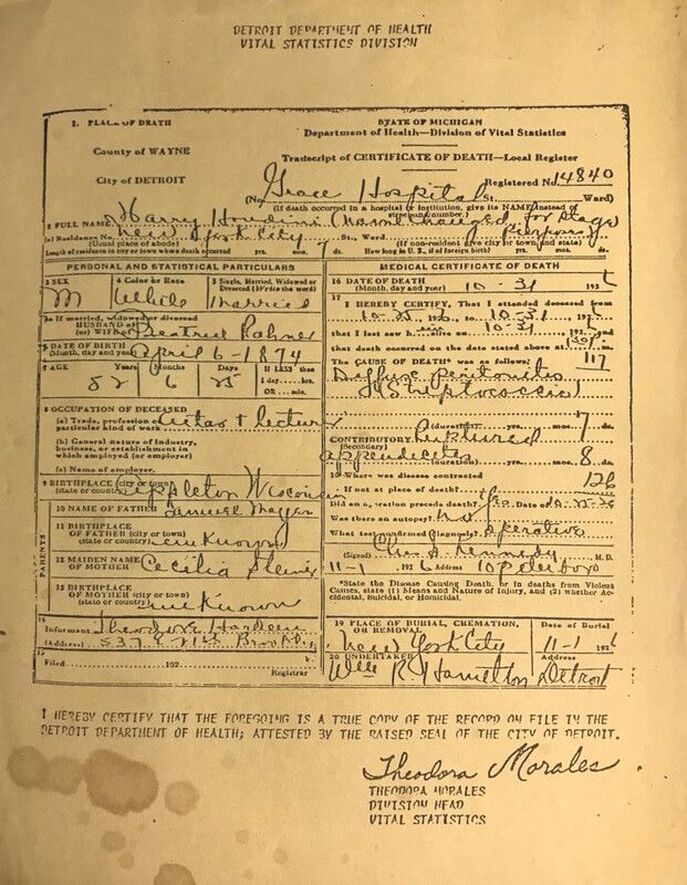 DETROIT DEPARTMENT OF HEALTH
VITAL STATISTICS DIVISION
1. PLACE OF DEATH
County of WAYNE
City of DETROIT
STATE OF MICHIGAN
Department of Health—Division of Vital Statistics
Transcript of CERTIFICATE OF DEATH—Local Register
Registered No. 14840
(No. Grace Hospital St. Ward)
(If death occurred in a hospital or institution, give its NAME instead of street and number.)
2 FULL NAME Harry Houdini (Name Changed for Stage purposes)
(a) Residence No. New York City St., Ward.
(Usual place of abode) (If non-resident give city or town and state)
Length of residence in city or town where death occurred yrs. mos. 7 ds. How long in U. S., if of foreign birth? yrs. mos. ds.
PERSONAL AND STATISTICAL PARTICULARS
3 SEX
M
4 Color or Race
White
5 Single, Married, Widowed or Divorced (Write the word)
Married
5a If married, widowed or divorced
HUSBAND of
(or) WIFE of Beatrice Rahner
6 DATE OF BIRTH
(Month, day and year) April 6-1874
7 AGE Years Months Days If LESS than
52 6 25 1 day.....hrs.
OR.....min.
8 OCCUPATION OF DECEASED
(a) Trade, profession or particular kind of work & lecturer
(b) General nature of Industry, business, or establishment in which employed (or employer)
(c) Name of employer.
9 BIRTHPLACE (city or town)
(state or country) Appleton Wisconsin
PARENTS
10 NAME OF FATHER Samuel
11 BIRTHPLACE
OF FATHER (city or town)
(state or country) Unknown
12 MAIDEN NAME
OF MOTHER Cecilia
13 BIRTHPLACE
OF MOTHER (city or town)
(state or country) Unknown
14
Informant Theodore Hardeen
(Address) 537 E 21st Brooklyn
15
Filed 192 Registrar
MEDICAL CERTIFICATE OF DEATH
16 DATE OF DEATH
(Month, day and year) 10-31 1926
17
I HEREBY CERTIFY, That I attended deceased from
10-25, 1926, to 10-31, 1926
that I last saw him alive on 10-31, 192, and
that death occurred on the date stated above at 130P m.
The CAUSE OF DEATH* was as follows: 117
Diffuse peritonitis
(Streptococcic)
(duration) yrs. mos. 7 ds.
CONTRIBUTORY Ruptured
(Secondary)
appendicitis
(duration) yrs. mos. 8 ds.
18 Where was disease contracted 126
If not at place of death?
Did an operation precede death? Yes Date of 10-25-26
Was there an autopsy? No
What test confirmed diagnosis? Operative
(Signed) Kennedy, M.D.
11-1, 1926 Address 10 Peterboro
*State the Disease Causing Death, or in deaths from Violent Causes, state (1) Means and Nature of Injury, and (2) whether Accidental, Suicidal, or Homicidal.
19 PLACE OF BURIAL, CREMATION, OR REMOVAL
New York City
Date of Burial
11-1 1926
20 UNDERTAKER
Wm R. Hamilton
Address
Detroit
I HEREBY CERTIFY THAT THE FOREGOING IS A TRUE COPY OF THE RECORD ON FILE IN THE
DETROIT DEPARTMENT OF HEALTH; ATTESTED BY THE RAISED SEAL OF THE CITY OF DETROIT.
Theodora Morales
THEODORA MORALES
DIVISION HEAD
VITAL STATISTICS